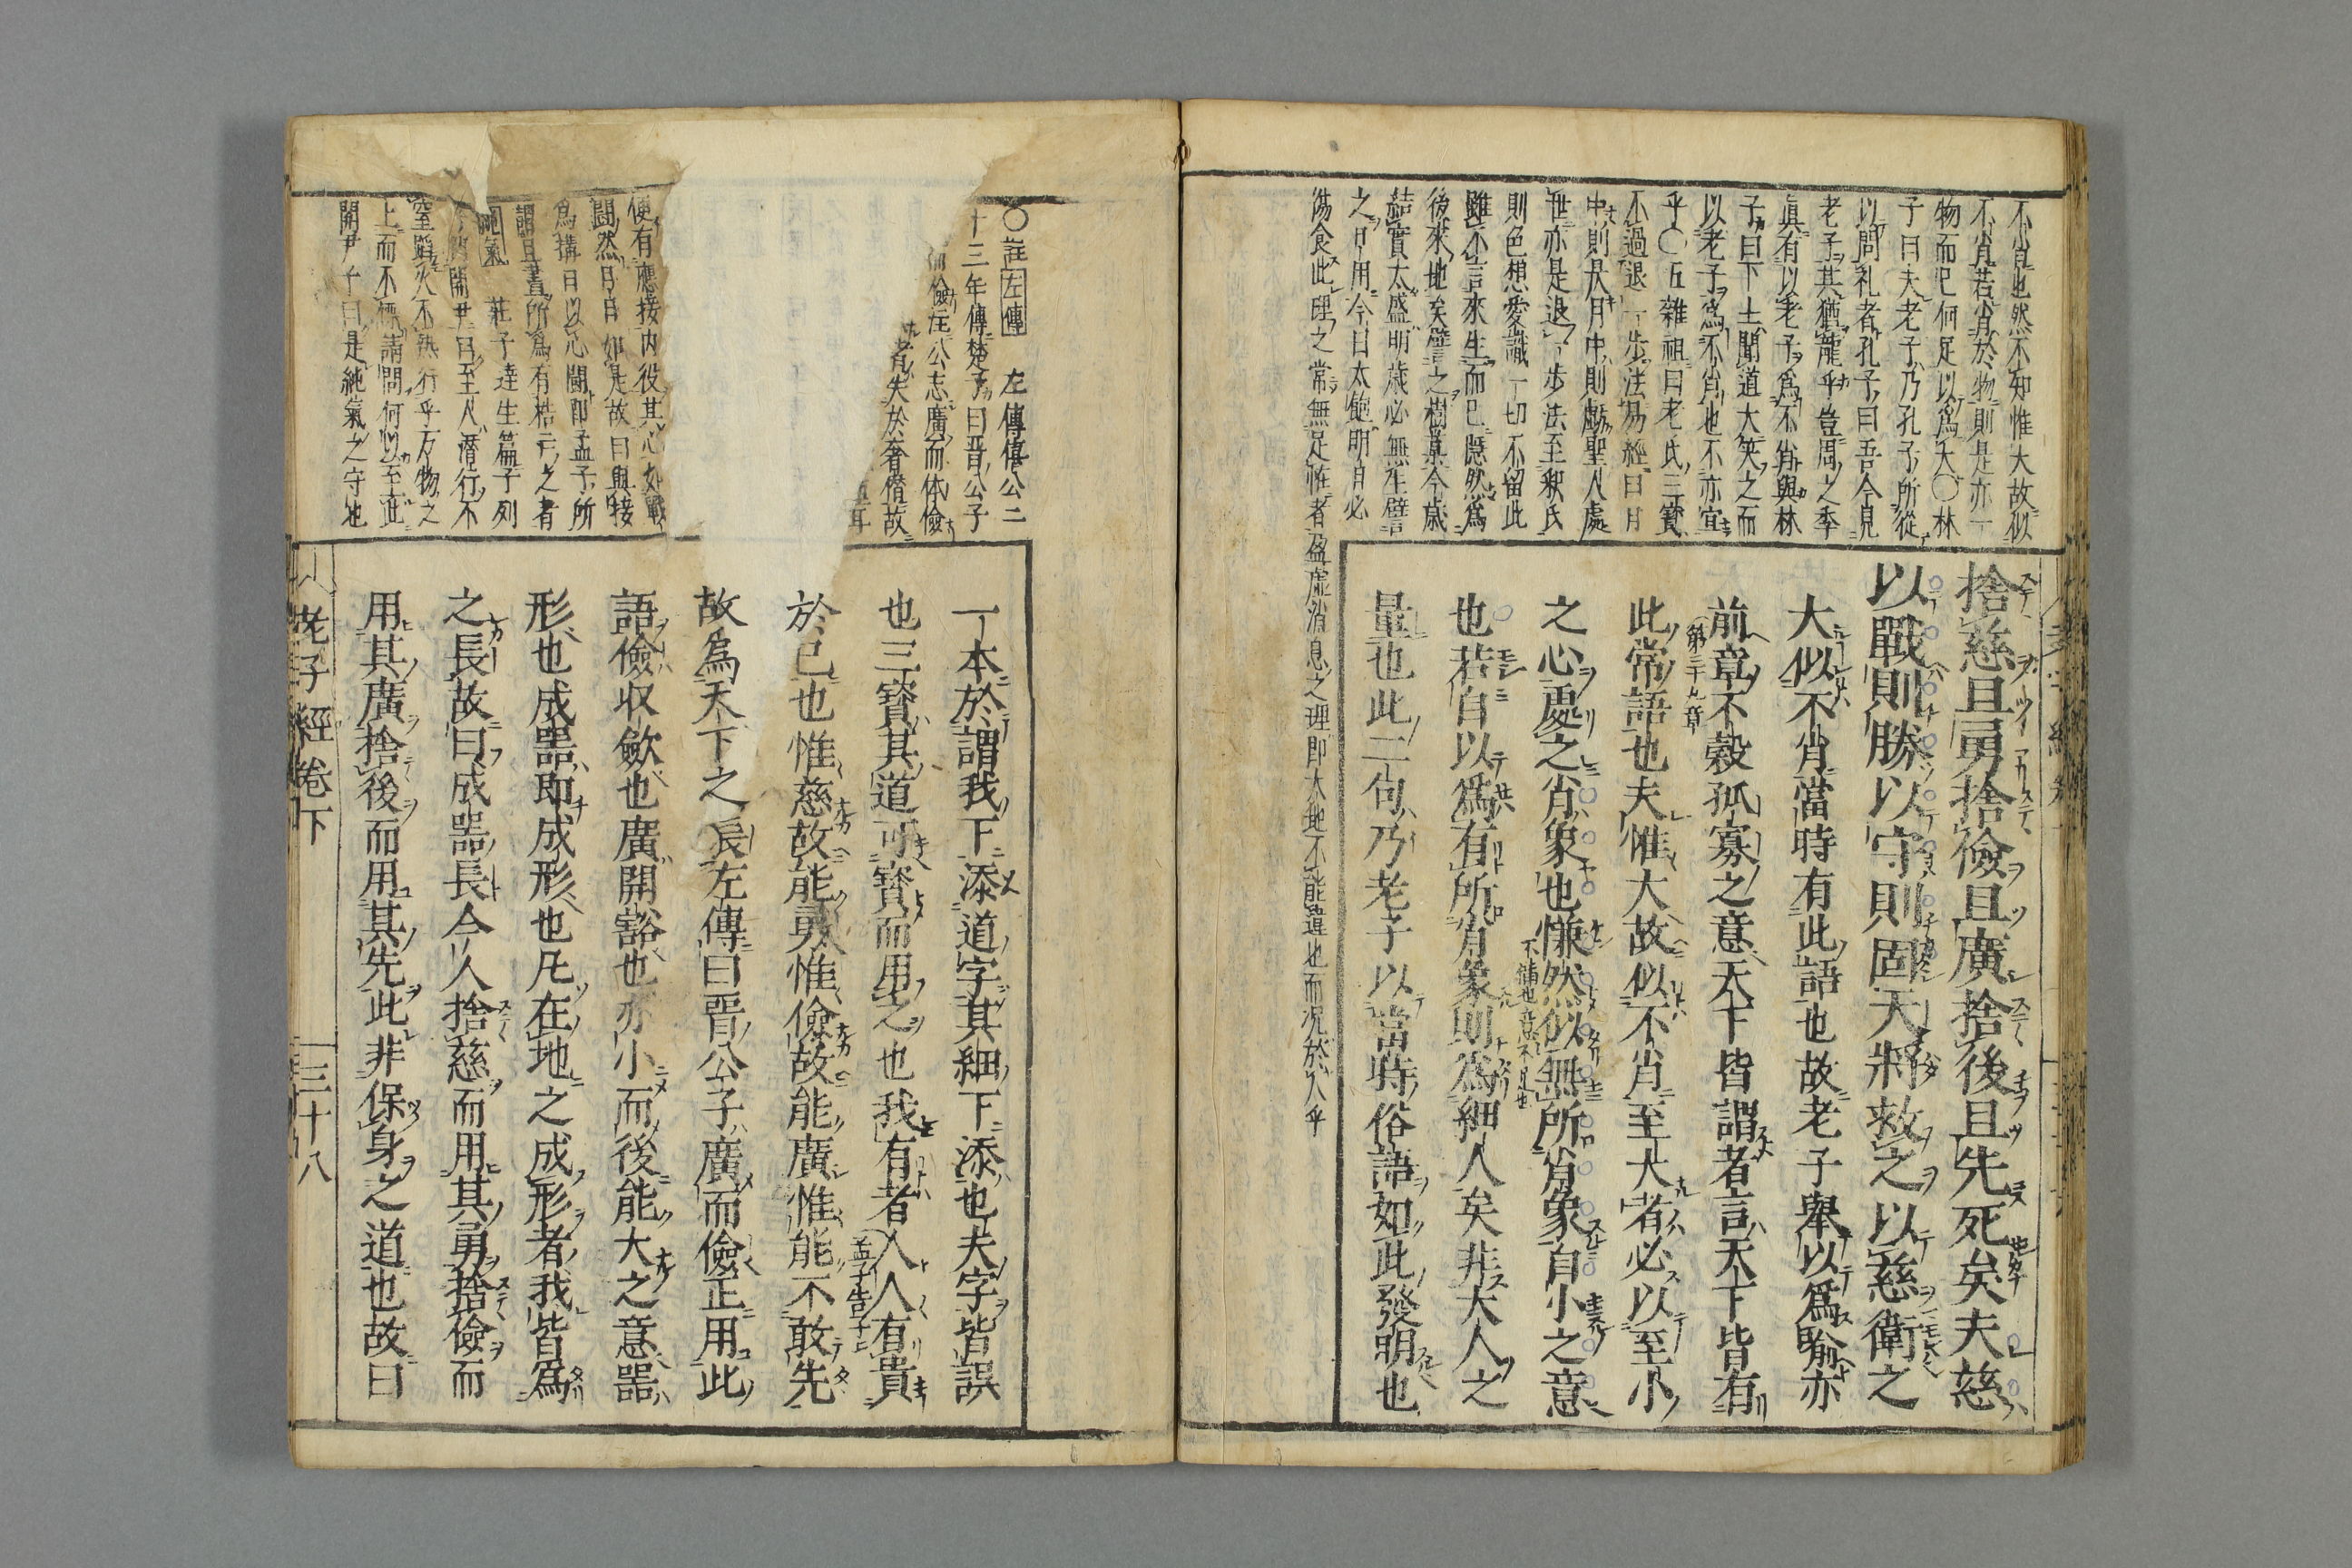 不肖也然不知惟大故似
不肖若肖於物則是亦一
物而已何足以爲大○林
子曰夫老子乃孔子所從
以問礼者孔子曰吾今見
老子其猶龍乎豈周之季
眞有以老子爲不肖與林
子曰下士聞道大笑之而
以老子爲不肖也不亦宜
乎○五雜祖曰老氏三寶
不過退一步法易經曰日
中則昃月中則虧聖人處
世亦是退一步法至釈氏
則色想愛識一切不留此
雖不言來生而已隱然爲
後來地矣譬之樹菓今歳
結實太盛明歳必無生譬
之日用今日太飽明日必
傷食此理之常無足恠者盈虚消息之理即天地不能違也而况於人乎
捨慈且勇捨儉且廣捨後且先死矣夫慈
以戰則勝以守則固天將救之以慈衛之
大似不肖當時有此語也故老子舉以爲喩亦
前章不穀孤寡之意天下皆謂者言天下皆有
第三十九章
此常語也夫惟大故似不肖至大者必以至小
之心處之肖象也慊然似無所肖象自小之意
也若自以爲有所肖象則爲細人矣非大人之
量也此二句乃老子以當時俗語如此發明也
○註左傳 左傳僖公二
十三年傳楚子曰晋公子
儉註公志廣而体儉
者失於奢僭故
耳
便有應接内役其心如戰
鬪然日日如是故曰與接
爲搆日以心鬪即孟子所
謂旦晝所爲有梏亡之者
純氣 莊子達生篇子列
子問關尹曰至人潜行不
窒蹈火不熱行乎万物之
上而不慄請問何以至此
關尹子曰是純氣之守也
一本於謂我下添道字其細下添也夫字皆誤
也三寳其道可寳而用之也我有者人人有貴
孟子告子上
於已也惟慈故能勇惟儉故能廣惟能不敢先
故爲天下之長左傳曰晋公子廣而儉正用此
語儉収斂也廣開豁也亦小而後能大之意噐
形也成噐即成形也凡在地之成形者我皆爲
之長故曰成噐長今人捨慈而用其勇捨儉而
用其廣捨後而用其先此非保身之道也故曰
老子經卷下
三十八